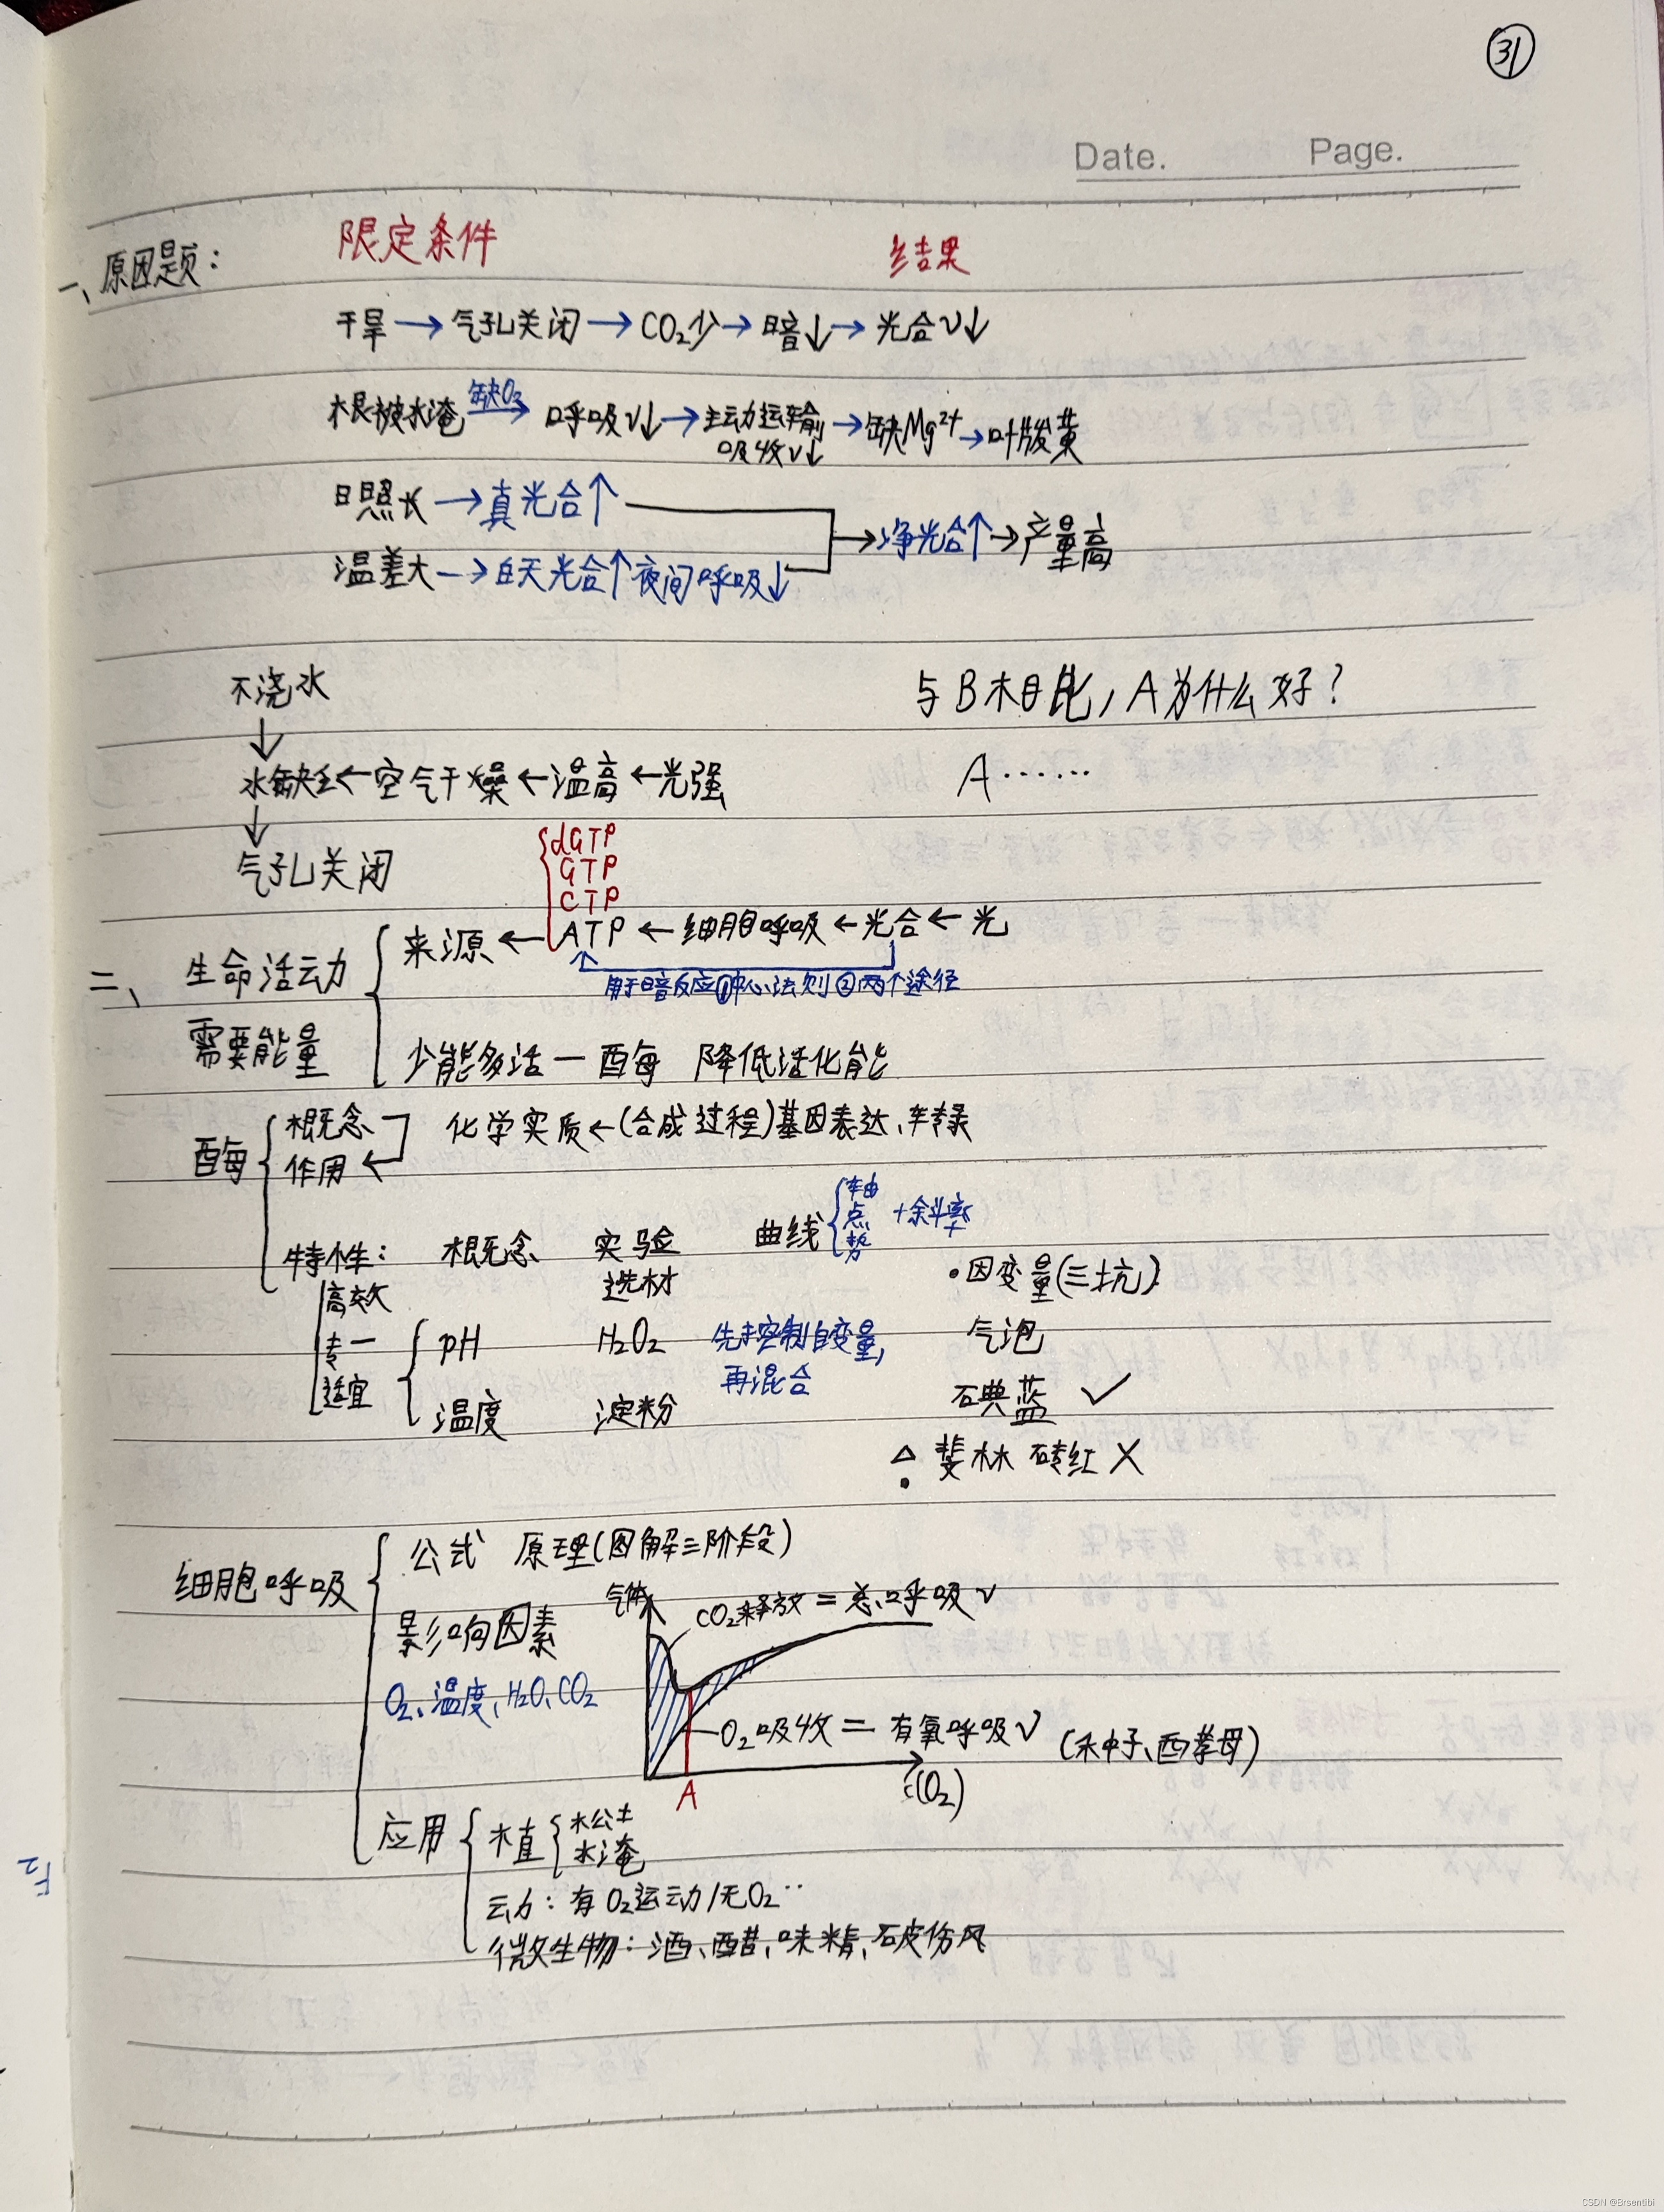 31
Date. Page.
一、原因题： 限定条件 结果
干旱→气孔关闭→CO₂少→暗↓→光合v↓
根被水淹 缺O₂→ 呼吸v↓→主动运输吸收v↓→缺Mg²⁺→叶发黄
日照长→真光合↑
→净光合↑→产量高
温差大→白天光合↑夜间呼吸↓
不浇水 与B相比，A为什么好？
↓
水缺乏←空气干燥←温高←光强 A……
↓
气孔关闭
dGTP
GTP
CTP
来源←ATP←细胞呼吸←光合←光
二、生命活动
用于暗反应①中心法则②两个途径
需要能量
少能多活—酶 降低活化能
酶 概念 化学实质←(合成过程)基因表达、转录
作用
特性： 概念 实验 曲线 轴 点 势 +斜率
高效 选材 ·因变量(三坑)
专一 pH H₂O₂ 先控制自变量， 气泡
适宜 再混合
温度 淀粉 碘蓝 ✓
斐林 砖红 X
细胞呼吸 公式 原理(图解三阶段)
气体 CO₂释放=总呼吸v
影响因素
O₂、温度、H₂O、CO₂
O₂吸收=有氧呼吸v (种子、酵母)
A c(O₂)
应用 植 松土
水淹
动：有O₂运动/无O₂‥
微生物：酒、醋、味精、破伤风
F₂
CSDN @Brsentibi